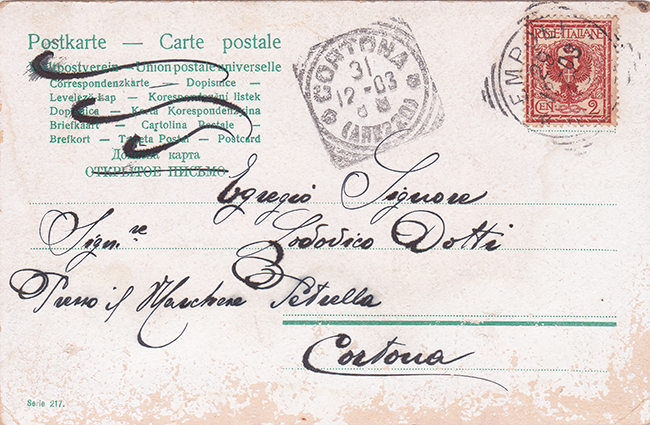 Postkarte — Carte postale
Weltpostverein — Union postale universelle
Correspondenzkarte — Dopisnice —
Levelező-lap — Korespondenční lístek
Dopisnica — Karta Korespondencyjna
Briefkaart — Cartolina Postale —
Brefkort — Tarjeta Postal — Postcard
Дописна карта
ОТКРЫТОЕ ПИСЬМО
CORTONA
31
12-03
(AREZZO)
EMPOLI
29
03
POSTE ITALIANE
CEN 2
Egregio Signore
Sign.re Lododico Dotti
Presso il Marchese Petrella
Cortona
Serie 217.